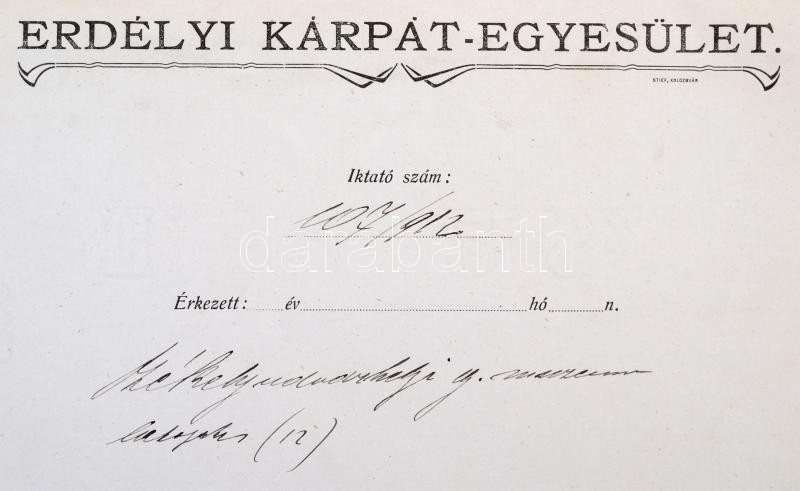 ERDÉLYI KÁRPÁT-EGYESÜLET.
STIEF, KOLOZSVÁR
Iktató szám:
107/912.
darabanth
Érkezett: év hó n.
Székelyudvarhelyi g. muzeum
(12)